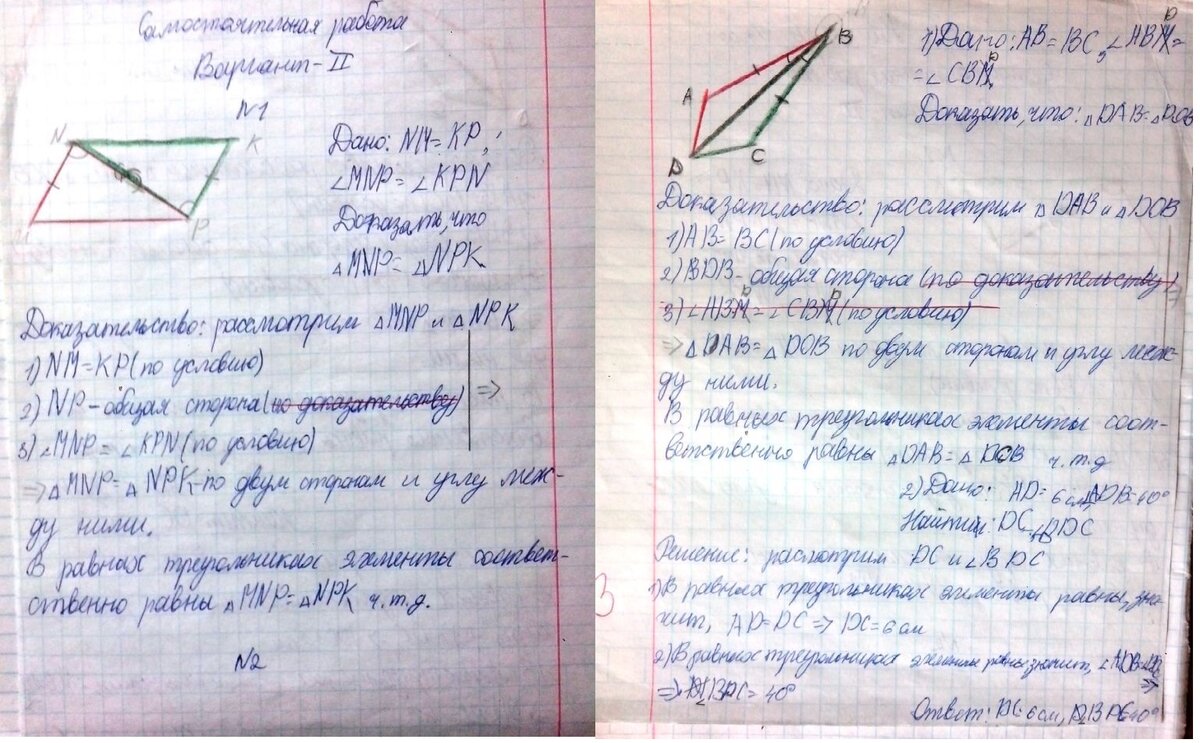 Самостоятельная работа
Вариант-II
N1
N K
P
Дано: NM=KP,
∠MNP=∠KPN
Доказать, что
△MNP=△NPK
Доказательство: рассмотрим △MNP и △NPK
1) NM=KP(по условию)
2) NP-общая сторона(по доказательству) =>
3) ∠MNP=∠KPN(по условию)
=> △MNP=△NPK-по двум сторонам и углу меж-
ду ними.
В равных треугольниках элементы соответ-
ственно равны △MNP=△NPK ч.т.д.
N2
B
A
D
C
1) Дано: AB=BC, ∠ABD=
=∠CBD
Доказать, что: △DAB=△DCB
Доказательство: рассмотрим △DAB и △DCB
1) AB=BC(по условию)
2) BDB-общая сторона(по доказательству) =>
3) ∠ABD=∠CBD(по условию)
=> △DAB=△DCB по двум сторонам и углу меж-
ду ними.
В равных треугольниках элементы соот-
ветственно равны △DAB=△DCB ч.т.д
2) Дано: AD=6см, ∠ADB=40°
Найти: DC, ∠BDC
Решение: расмотрим DC и ∠BDC
1) В равных треугольниках элементы равны, зна-
чит, AD=DC => DC=6см
2) В равных треугольниках элементы равны, значит, ∠ADB=
=> ∠BDC=40°
Ответ: DC=6см,
3